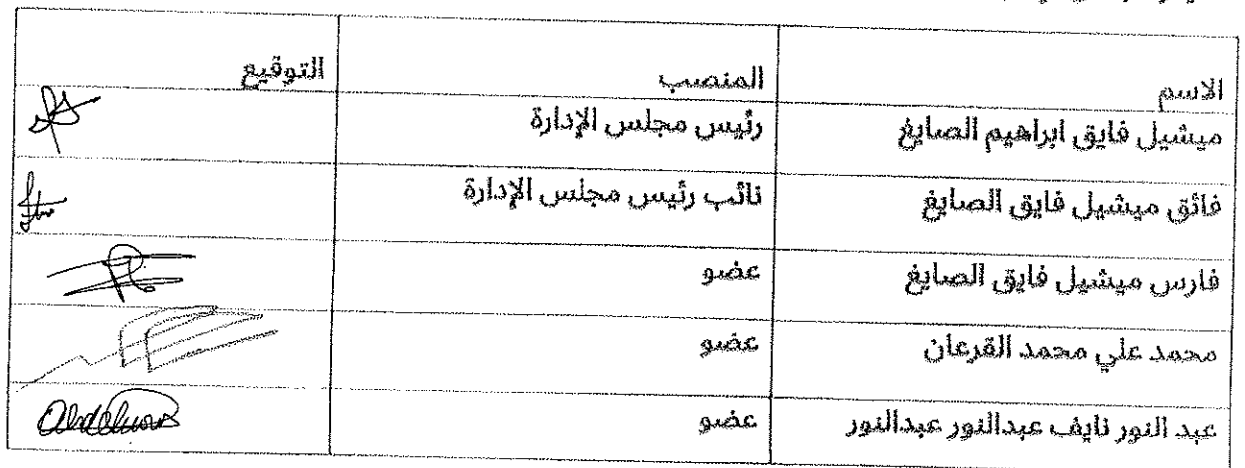 الاسم المنصب التوقيع
ميشيل فايق ابراهيم الصايغ رئيس مجلس الإدارة
فائق ميشيل فايق الصايغ نائب رئيس مجلس الإدارة
فارس ميشيل فايق الصايغ عضو
محمد علي محمد القرعان عضو
عبد النور نايف عبدالنور عبدالنور عضو